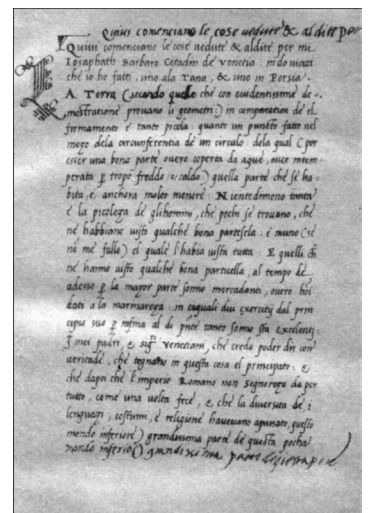 Quiui comenciano le cose uedute & aldite per
Quiui comenciano le cose uedute & aldite per mi
Iosaphath Barbaro Citadin de Venetia in do uiazi
che io ho fatti, uno ala Tana, & uno in Persia.
A Terra (secondo quello che con euidentissime de
mostratione prouano li geometri) in comparation del
firmamento è tanto picola quanto un punto fatto nel
mezo dela circunferentia de un circulo: dela qual (per
esser una bona parte ouero coperta da aque, ouer intem
perata ꝑ tropo freddo o, caldo) quella parte che se ha
bita, e, anchora molto menore: Nientedimeno tanta
è la picoleza de glihomini, che pochi se trouano, che
ne habbiano uisto qualche bona partesela: e niuno (se
nō me fallo) el quale l'habia uista tutta. E quelli ch
ne hanno uisto qualche bona particella, al tempo de
adesso ꝑ la mazor parte sonno mercadanti, ouero homini
dati a la marinareza. in iquali dui exercitij dal prin
cipio suo ꝑ insina al dì presente tanto sonno sta excelenti
I mei padri, e, signori Venetiani, che credo poder dir con
ueritade, che tegnano in questa cosa el principato: e,
che dapoi che l'imperio Romano non segnoreza da per
tutto, come una uolta fece, e, che la diuersita de i
lenguazi, costumi, e religione haueuano apanato, questo
mondo inferiore) grandissima parte de questa pocha
mondo inferio() grandissima parte de